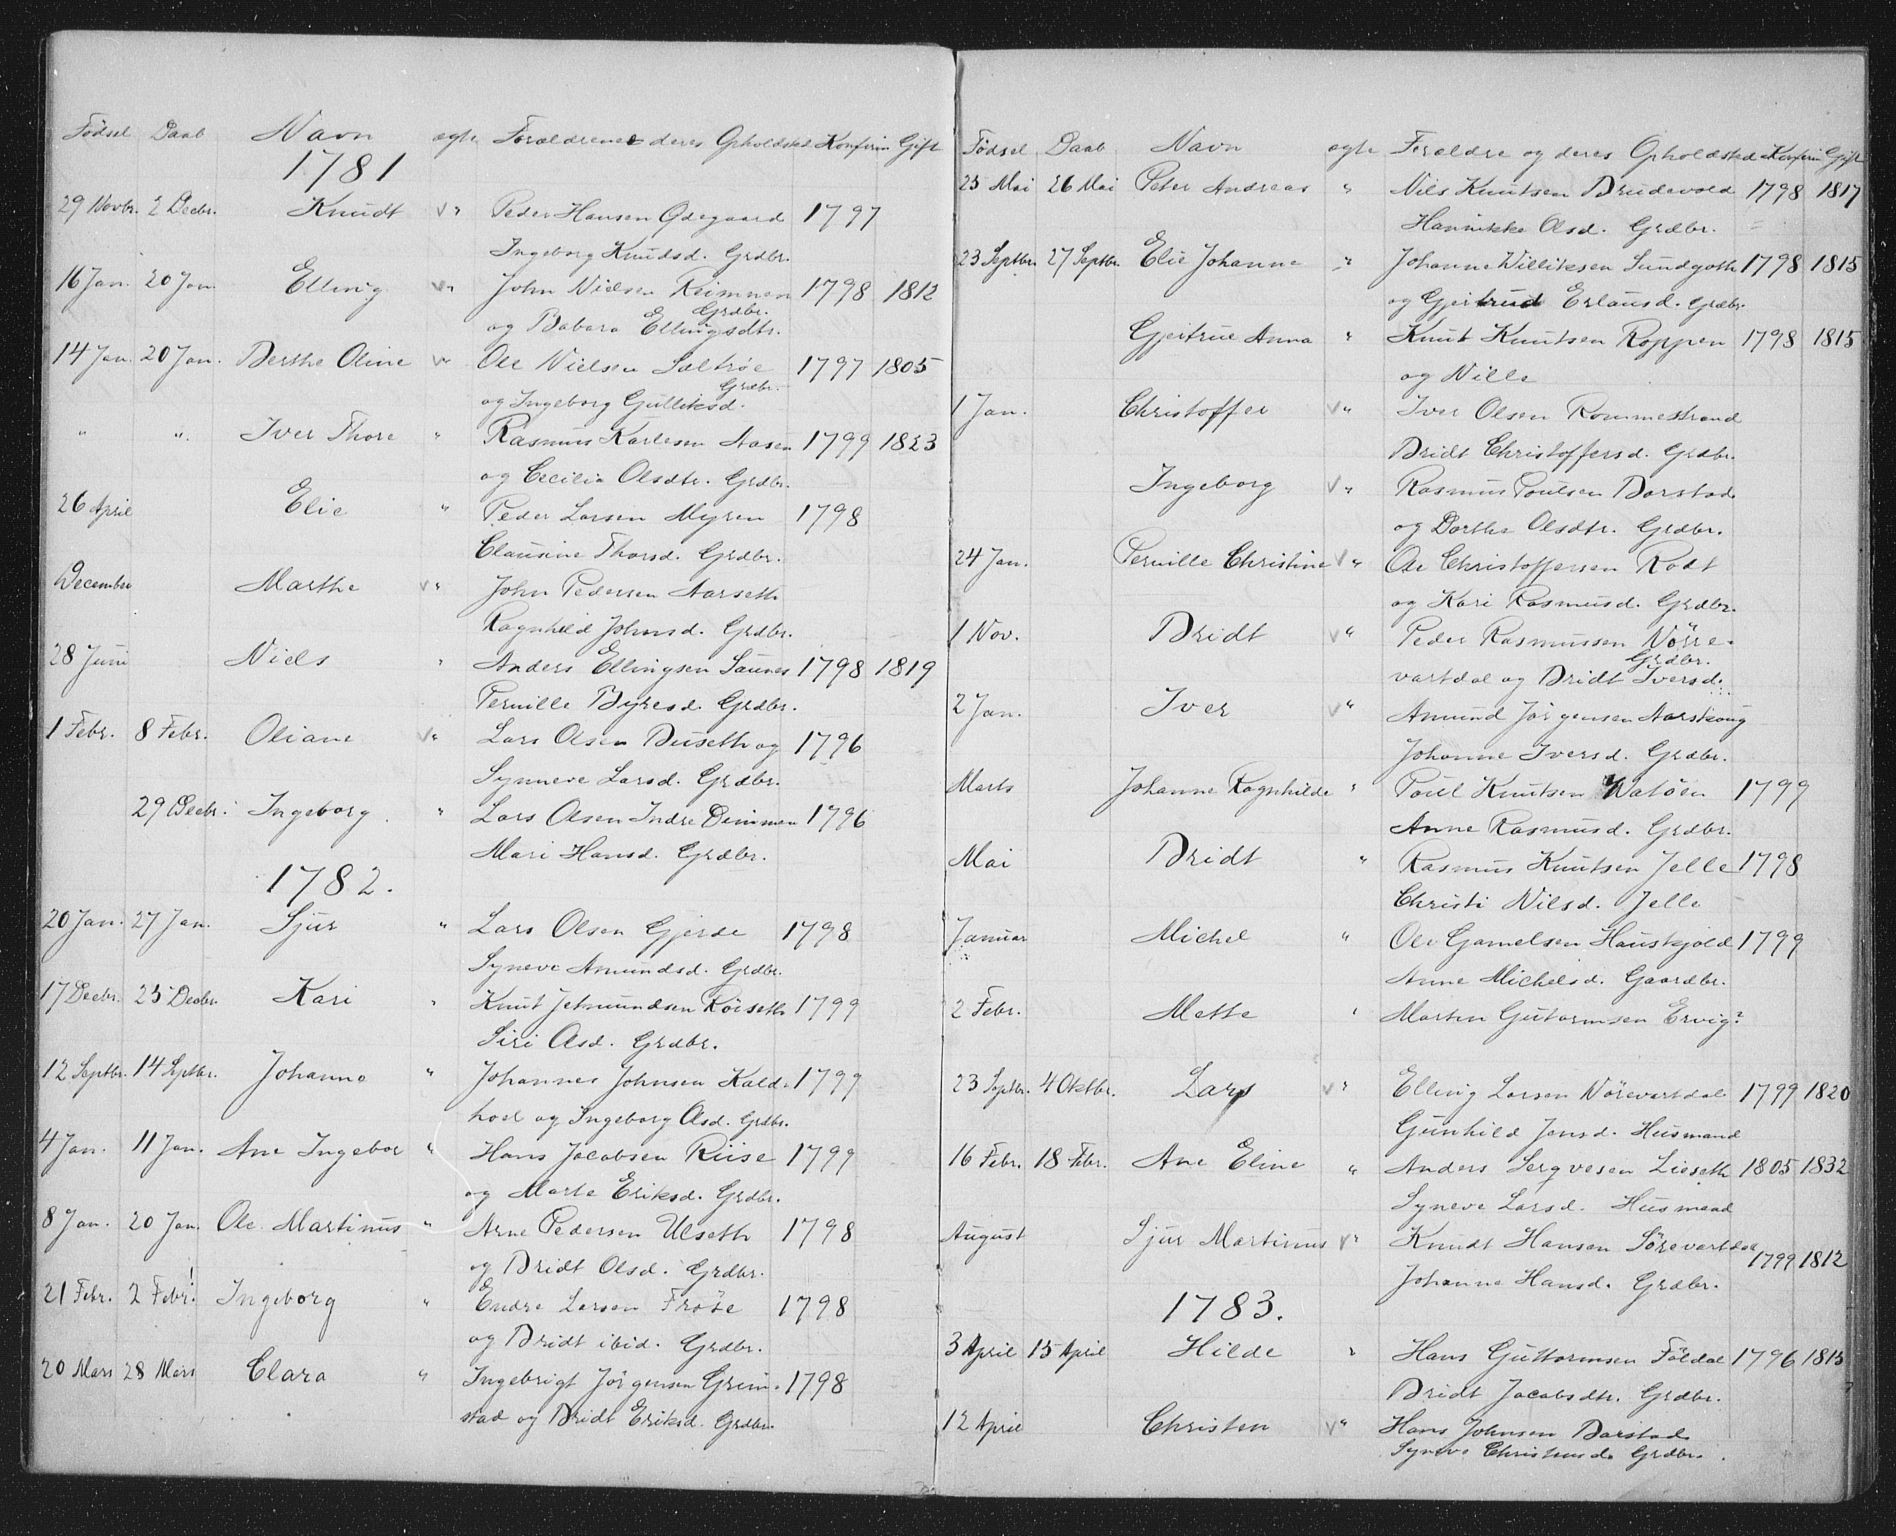 Fødsel Daab Navn ægte Forældrene deres Opholdsted Konfirm Gift
1781
29 Novbr. 2 Decbr. Knudt V " Peder Hansen Ødegaard 1797
Ingeborg Knudsd. Grdbr.
16 Jan. 20 Jan. Elling V " John Nielsen Reimnen 1798 1812
Grdbr.
og Babara Ellingsdtr.
14 Jan. 20 Jan. Berthe Oline V " Ole Nielsen Sæltrøe 1797 1805
Grdbr.
og Ingeborg Gulliksd.
" " Iver Thore " Rasmus Karlesen Aasen 1799 1823
og Cecilia Olsdtr. Grdbr.
26 April Elie " Peder Larsen Myren 1798
Clausine Thorsd. Grdbr.
December Marthe V " John Pedersen Aarseth
Ragnhild Johnsd. Grdbr.
28 Juni Niels " Anders Ellingsen Saunes 1798 1819
Pernille Byresd. Grdbr.
1 Febr. 8 Febr. Oliane V " Lars Olsen Buseth og 1796
Synneve Larsd. Grdbr.
29 Decbr. Ingeborg " Lars Olsen Indre Dimmen 1796
Mari Hansd. Grdbr.
1782.
20 Jan. 27 Jan. Sjur " Lars Olsen Gjerde 1798
Syneve Amundsd. Grdbr.
17 Decbr. 25 Decbr. Kari " Knut Jetmundsen Røiseth 1799
Siri Olsd. Grdbr.
12 Septbr. 14 Septbr. Johanne " Johannes Johnsen Kald- 1799
hoel og Ingeborg Olsd. Grdbr.
4 Jan. 11 Jan. Ane Ingebor " Hans Jacobsen Riise 1799
og Marte Eriksd. Grdbr.
8 Jan. 20 Jan. Ole Martinus " Arne Pedersen Ulseth 1798
og Bridt Olsd. Grdbr.
21 Febr. 2 Febr.! Ingeborg " Endre Larsen Frøie 1798
og Bridt ibid. Grdbr.
20 Mars 28 Mars Clara " Ingebrigt Jørgensen Grim- 1798
stad og Bridt Eriksd. Grdbr.
Fødsel Daab Navn ægte Forældre og deres Opholdsted Konfirm Gift
25 Mai 26 Mai Peter Andreas " Nils Knutsen Brudevold 1798 1817
Hannikke Olsd. Grdbr.
23 Septbr. 27 Septbr. Elie Johanne " Johanne Williksen Sundgoth 1798 1815
og Gjertrud Erlandsd. Grdbr.
Gjertrue Anna " Knut Knutsen Roppen 1798 1815
og Nille
1 Jan. Christoffer V " Iver Olsen Rommestrand
Bridt Christoffersd. Grdbr.
Ingeborg V " Rasmus Poulsen Barstad
og Dorthe Olsdtr. Grdbr.
24 Jan. Pernille Christine V " Ole Christoffersen Rødt
og Kari Rasmusd. Grdbr.
1 Nov. Bridt V " Peder Rasmussen Nørre-
Grdbr.
vartdal og Bridt Iversd.
2 Jan. Iver V " Amund Jørgensen Aarskoug
Johanne Iversd. Grdbr.
Marts Johanne Ragnhilde " Poul Knutsen Watøen 1799
Anne Rasmusd. Grdbr.
Mai Bridt " Rasmus Knutsen Jelle 1798
Christi Nilsd. Jelle
Januar Michel " Ole Gamelsen Hauskjold 1799
Anne Michelsd. Gaardbr.
2 Febr. Mette " Morten Gutormsen Ervig?
23 Septbr. 4 Oktbr. Lars V " Elling Larsen Nørevartdal 1799 1820
Gunhild Jensd. Husmand
16 Febr. 18 Febr. Ane Eline " Anders Sergvesen Lieseth 1805 1832
Syneve Larsd. Husmand
August Sjur Martinus V " Knudt Hansen Sørevartdal 1799 1812
Johanne Hansd. Grdbr.
1783.
3 April 15 April Hilde " Hans Guttormsen Føldal 1796 1815
Bridt Jacobsdtr. Grdbr.
12 April Christen V " Hans Johnsen Barstad
Syneve Christensd. Grdbr.